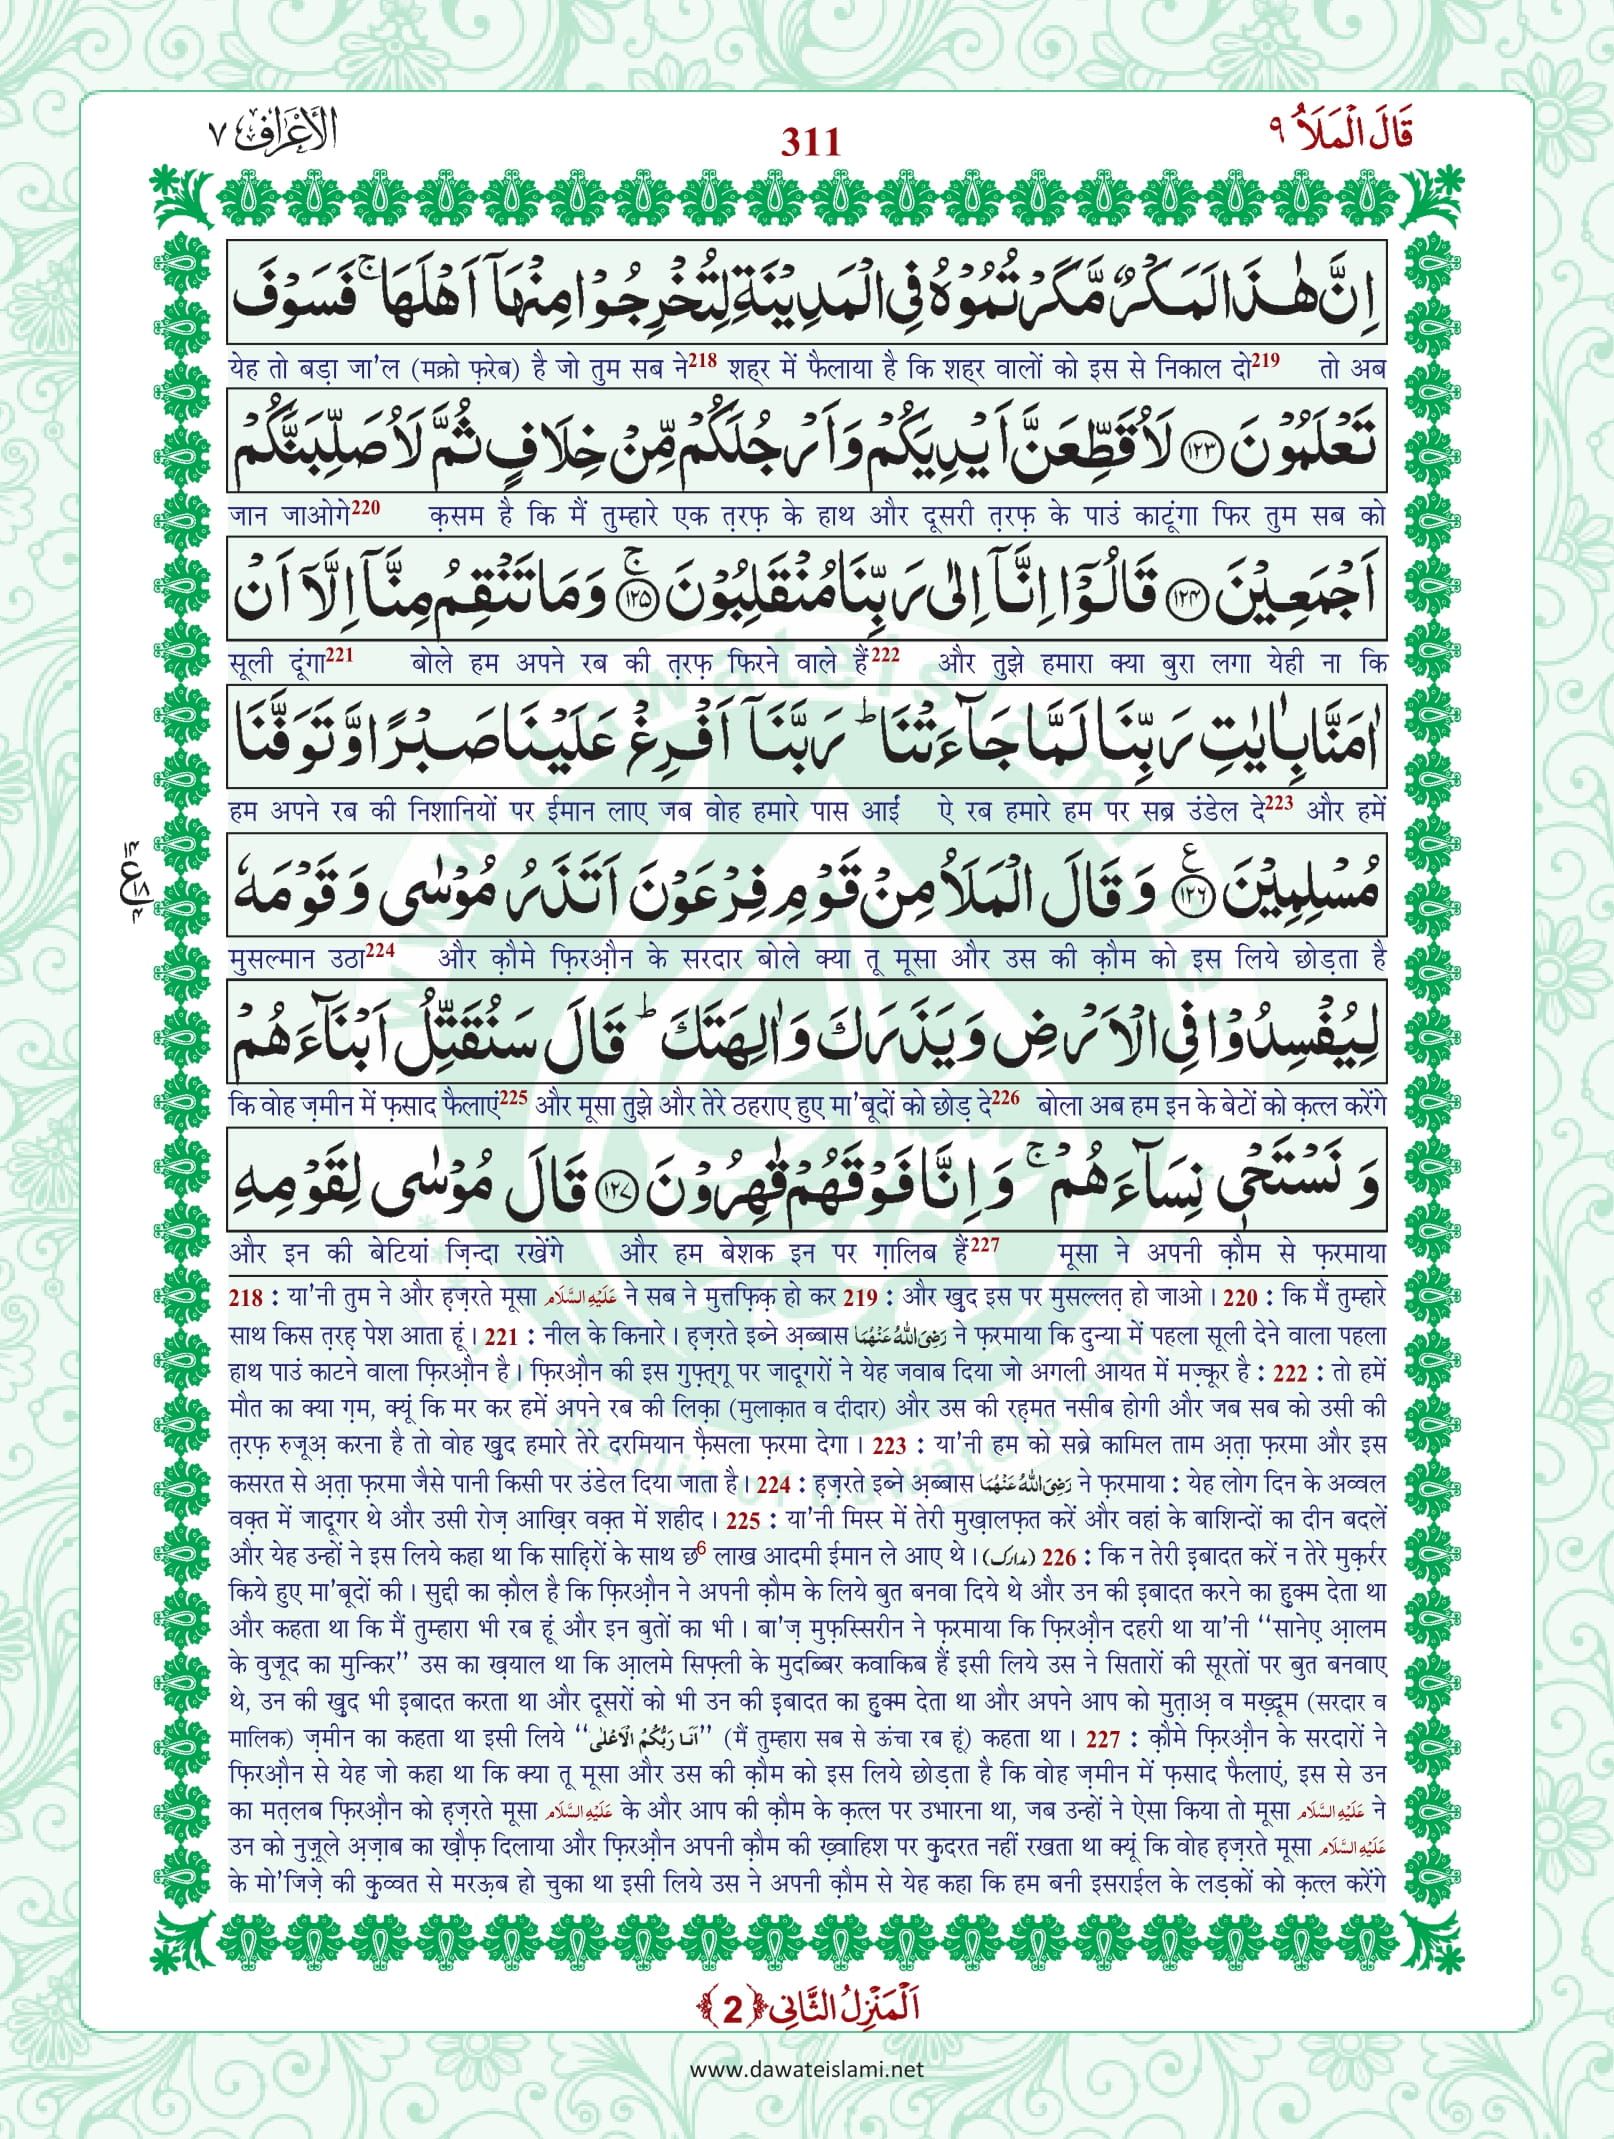 قَالَ الْمَلَاُ ۹
311
الْاَعْرَاف ۷
اِنَّ هٰذَا لَمَكْرٌ مَّكَرْتُمُوْهُ فِی الْمَدِیْنَةِ لِتُخْرِجُوْا مِنْهَاۤ اَهْلَهَاۚ فَسَوْفَ
येह तो बड़ा जा’ल (मक्रो फ़रेब) है जो तुम सब ने218 शहर में फैलाया है कि शहर वालों को इस से निकाल दो219 तो अब
تَعْلَمُوْنَ ﴿۱۲۳﴾ لَاُقَطِّعَنَّ اَیْدِیَكُمْ وَ اَرْجُلَكُمْ مِّنْ خِلَافٍ ثُمَّ لَاُصَلِّبَنَّكُمْ
जान जाओगे220 क़सम है कि मैं तुम्हारे एक त़रफ़ के हाथ और दूसरी त़रफ़ के पाउं काटूंगा फिर तुम सब को
اَجْمَعِیْنَ ﴿۱۲۴﴾ قَالُوْۤا اِنَّاۤ اِلٰى رَبِّنَا مُنْقَلِبُوْنَ ﴿۱۲۵﴾ۚ وَ مَا تَنْقِمُ مِنَّاۤ اِلَّاۤ اَنْ
सूली दूंगा221 बोले हम अपने रब की त़रफ़ फिरने वाले हैं222 और तुझे हमारा क्या बुरा लगा येही ना कि
اٰمَنَّا بِاٰیٰتِ رَبِّنَا لَمَّا جَآءَتْنَاؕ رَبَّنَاۤ اَفْرِغْ عَلَیْنَا صَبْرًا وَّ تَوَفَّنَا
हम अपने रब की निशानियों पर ईमान लाए जब वोह हमारे पास आईं ऐ रब हमारे हम पर सब्र उंडेल दे223 और हमें
مُسْلِمِیْنَ ﴿۱۲۶﴾ع وَ قَالَ الْمَلَاُ مِنْ قَوْمِ فِرْعَوْنَ اَتَذَرُ مُوْسٰى وَ قَوْمَهٗ
मुसल्मान उठा224 और क़ौमे फ़िरऔ़न के सरदार बोले क्या तू मूसा और उस की क़ौम को इस लिये छोड़ता है
لِیُفْسِدُوْا فِی الْاَرْضِ وَ یَذَرَكَ وَ اٰلِهَتَكَؕ قَالَ سَنُقَتِّلُ اَبْنَآءَهُمْ
कि वोह ज़मीन में फ़साद फैलाएं225 और मूसा तुझे और तेरे ठहराए हुए मा’बूदों को छोड़ दे226 बोला अब हम इन के बेटों को क़त्ल करेंगे
وَ نَسْتَحْیٖ نِسَآءَهُمْۚ وَ اِنَّا فَوْقَهُمْ قٰهِرُوْنَ ﴿۱۲۷﴾ قَالَ مُوْسٰى لِقَوْمِهِ
और इन की बेटियां ज़िन्दा रखेंगे और हम बेशक इन पर ग़ालिब हैं227 मूसा ने अपनी क़ौम से फ़रमाया
218 : या’नी तुम ने और ह़ज़रते मूसा عَلَیْهِ السَّلَام ने सब ने मुत्तफ़िक़ हो कर 219 : और ख़ुद इस पर मुसल्लत़ हो जाओ । 220 : कि मैं तुम्हारे
साथ किस त़रह़ पेश आता हूं । 221 : नील के किनारे । ह़ज़रते इब्ने अ़ब्बास رَضِیَ اللّٰهُ عَنْهُمَا ने फ़रमाया कि दुन्या में पहला सूली देने वाला पहला
हाथ पाउं काटने वाला फ़िरऔ़न है । फ़िरऔ़न की इस गुफ़्त्गू पर जादूगरों ने येह जवाब दिया जो अगली आयत में मज़्कूर है : 222 : तो हमें
मौत का क्या ग़म, क्यूं कि मर कर हमें अपने रब की लिक़ा (मुलाक़ात व दीदार) और उस की रह़मत नसीब होगी और जब सब को उसी की
त़रफ़ रुजूअ़ करना है तो वोह ख़ुद हमारे तेरे दरमियान फ़ैसला फ़रमा देगा । 223 : या’नी हम को सब्रे कामिल ताम अ़त़ा फ़रमा और इस
कसरत से अ़त़ा फ़रमा जैसे पानी किसी पर उंडेल दिया जाता है । 224 : ह़ज़रते इब्ने अ़ब्बास رَضِیَ اللّٰهُ عَنْهُمَا ने फ़रमाया : येह लोग दिन के अव्वल
वक़्त में जादूगर थे और उसी रोज़ आख़िर वक़्त में शहीद । 225 : या’नी मिस्र में तेरी मुख़ालफ़त करें और वहां के बाशिन्दों का दीन बदलें
और येह उन्हों ने इस लिये कहा था कि साह़िरों के साथ छ6 लाख आदमी ईमान ले आए थे । (مدارک) 226 : कि न तेरी इ़बादत करें न तेरे मुक़र्रर
किये हुए मा’बूदों की । सुद्दी का क़ौल है कि फ़िरऔ़न ने अपनी क़ौम के लिये बुत बनवा दिये थे और उन की इ़बादत करने का हु़क्म देता था
और कहता था कि मैं तुम्हारा भी रब हूं और इन बुतों का भी । बा’ज़ मुफ़स्सिरीन ने फ़रमाया कि फ़िरऔ़न दहरी था या’नी ‘‘सानेए़ आ़लम
के वुजूद का मुन्किर’’ उस का ख़याल था कि आ़लमे सिफ़्ली के मुदब्बिर कवाकिब हैं इसी लिये उस ने सितारों की सूरतों पर बुत बनवाए
थे, उन की ख़ुद भी इ़बादत करता था और दूसरों को भी उन की इ़बादत का हु़क्म देता था और अपने आप को मुत़ाअ़ व मख़्दूम (सरदार व
मालिक) ज़मीन का कहता था इसी लिये ‘‘اَنَا رَبُّكُمُ الْاَعْلٰى’’ (मैं तुम्हारा सब से ऊंचा रब हूं) कहता था । 227 : क़ौमे फ़िरऔ़न के सरदारों ने
फ़िरऔ़न से येह जो कहा था कि क्या तू मूसा और उस की क़ौम को इस लिये छोड़ता है कि वोह ज़मीन में फ़साद फैलाएं, इस से उन
का मत़लब फ़िरऔ़न को ह़ज़रते मूसा عَلَیْهِ السَّلَام के और आप की क़ौम के क़त्ल पर उभारना था, जब उन्हों ने ऐसा किया तो मूसा عَلَیْهِ السَّلَام ने
उन को नुज़ूले अ़ज़ाब का ख़ौफ़ दिलाया और फ़िरऔ़न अपनी क़ौम की ख़्वाहिश पर क़ुदरत नहीं रखता था क्यूं कि वोह ह़ज़रते मूसा عَلَیْهِ السَّلَام
के मो’जिज़े की क़ुव्वत से मरऊ़ब हो चुका था इसी लिये उस ने अपनी क़ौम से येह कहा कि हम बनी इसराईल के लड़कों को क़त्ल करेंगे
اَلْمَنْزِلُ الثَّانِی ﴿2﴾
www.dawateislami.net